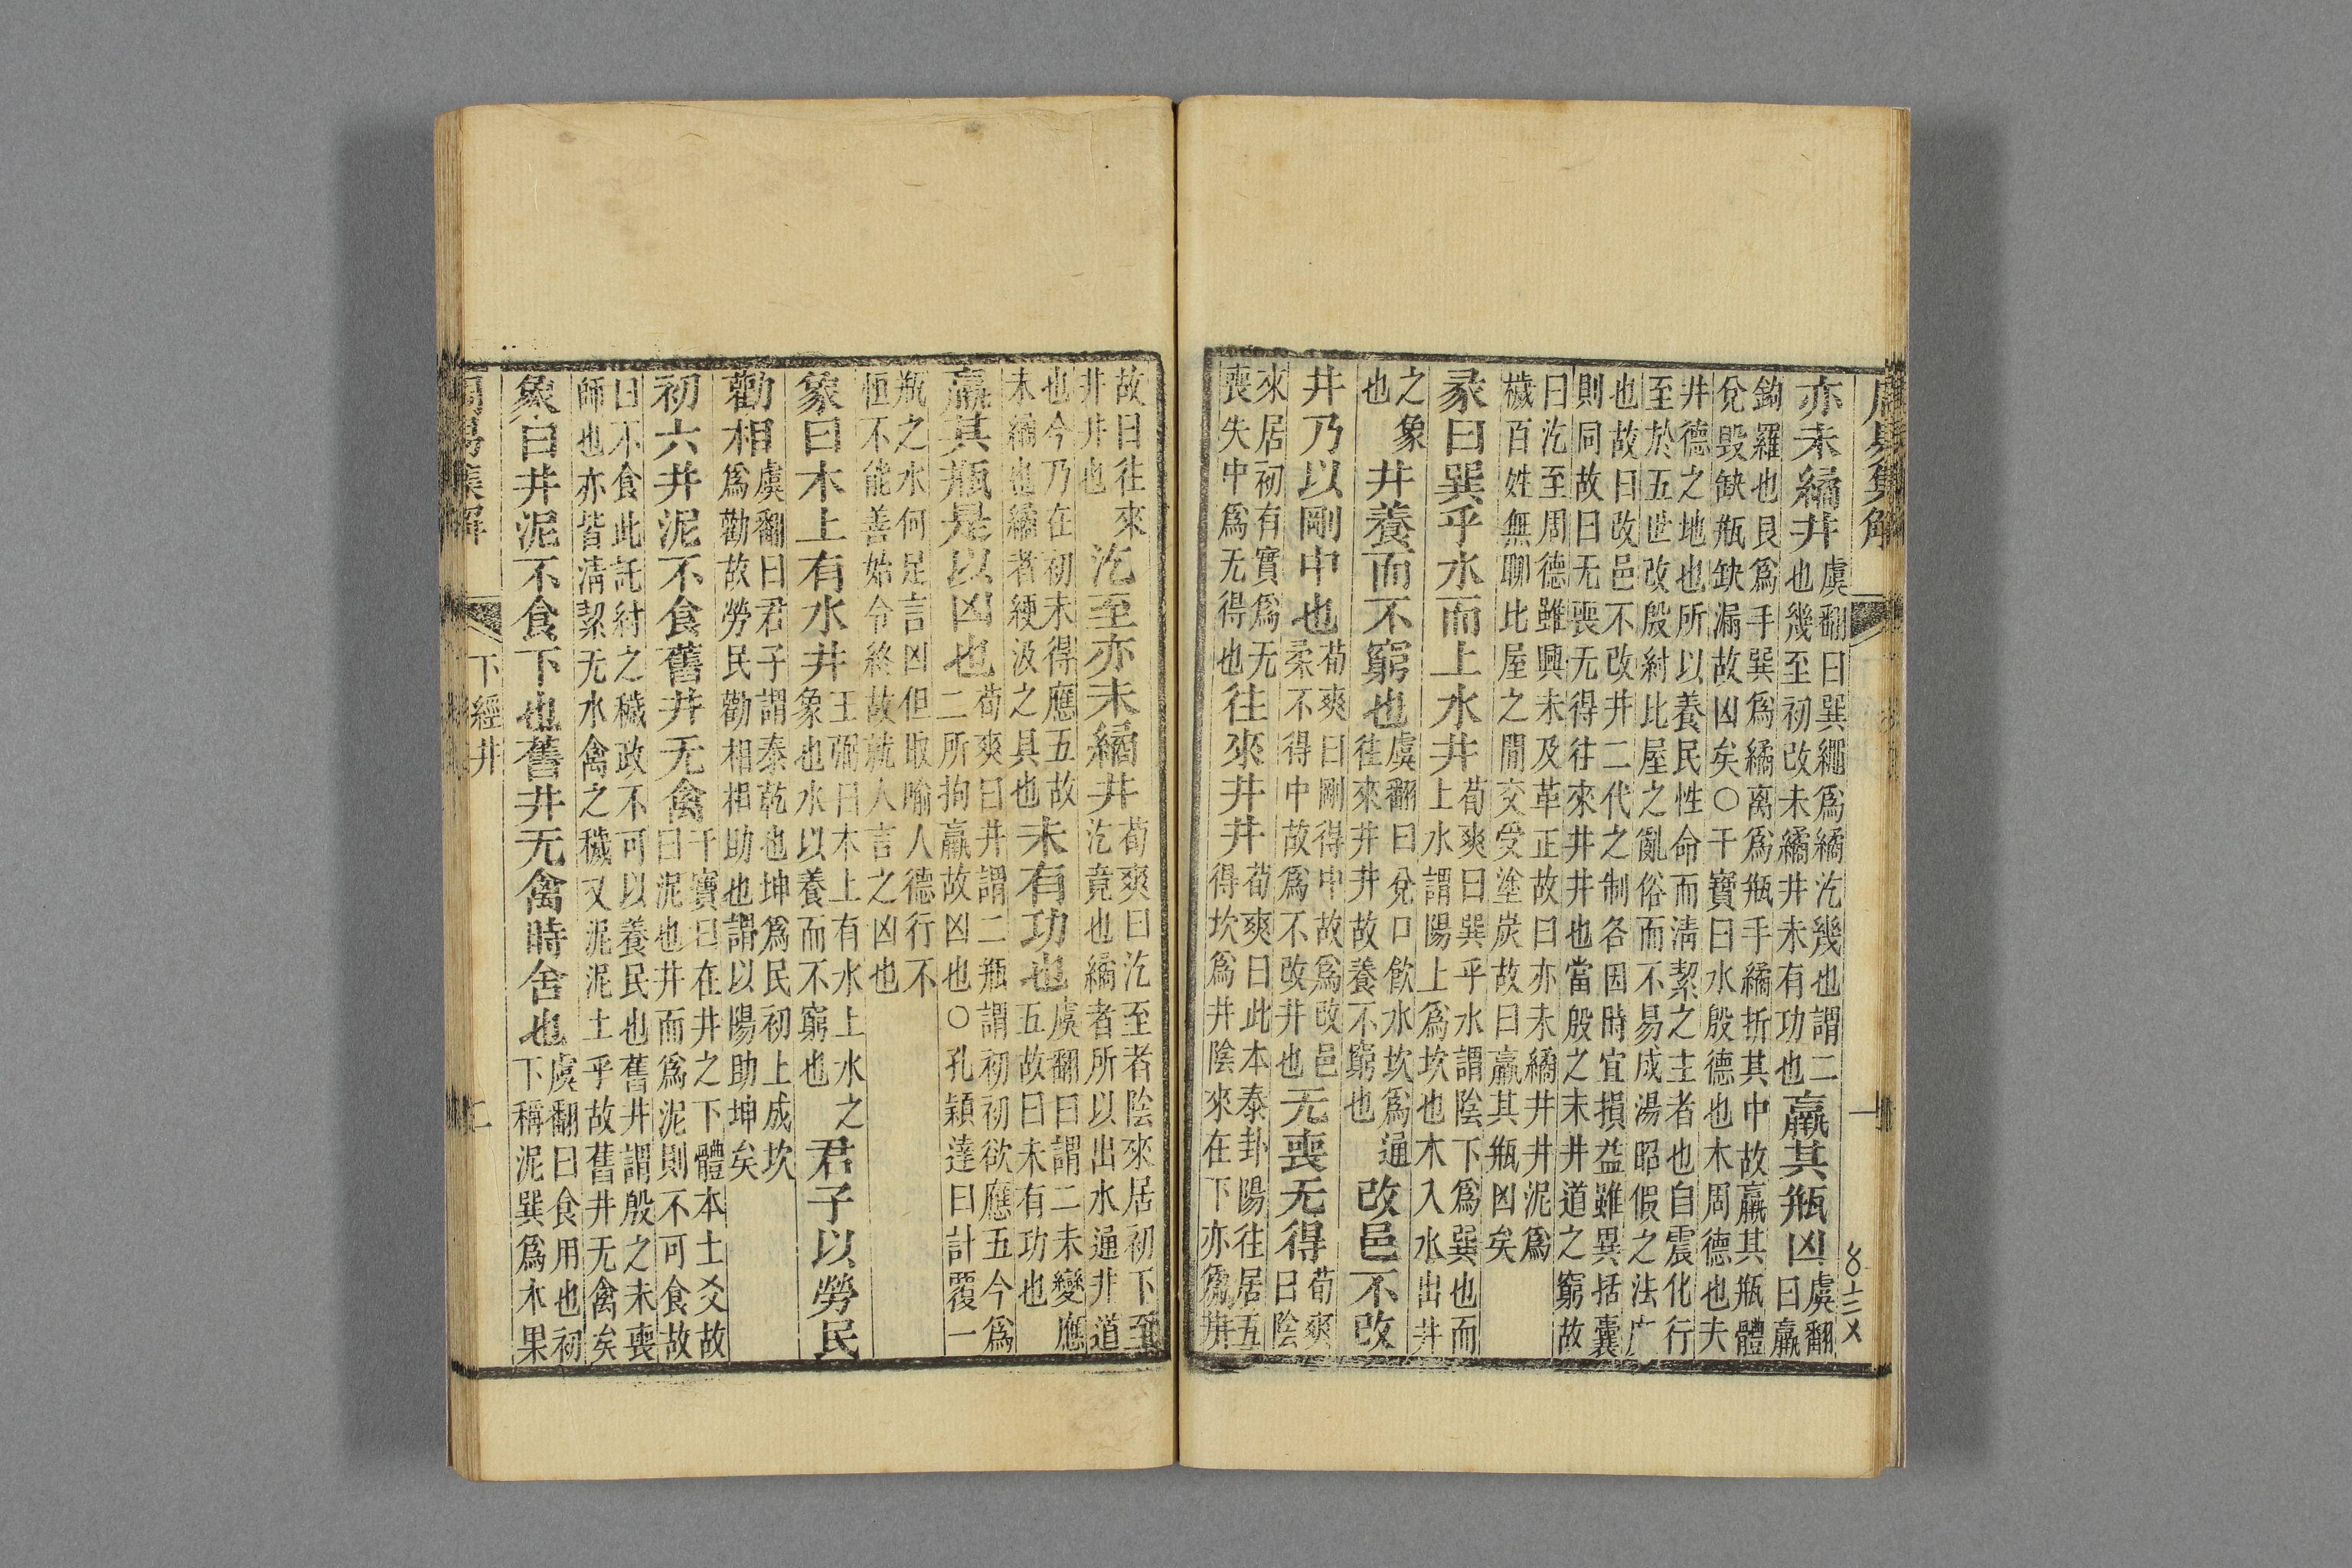 周易集解 一
亦未繘井虞翻曰巽繩爲繘汔幾也謂二
也幾至初改未繘井未有功也羸其瓶凶虞翻
曰羸
鈎羅也艮爲手巽爲繘离爲瓶手繘折其中故羸其瓶體
兌毁缺瓶缺漏故凶矣○干寶曰水殷德也木周德也夫
井德之地也所以養民性命而清絜之主者也自震化行
至於五世改殷紂比屋之亂俗而不易成湯昭假之法
也故曰改邑不改井二代之制各因時宜損益雖異括囊
則同故曰无喪无得往來井井也當殷之末井道之窮故
曰汔至周德雖興未及革正故曰亦未繘井井泥爲
穢百姓無聊比屋之間交受塗炭故曰羸其瓶凶矣
彖曰巽乎水而上水井荀爽曰巽乎水謂陰下爲巽也而
上水謂陽上爲坎也木入水出井
之象
也井養而不窮也虞翻曰兌口飲水坎爲通
往來井井故養不窮也改邑不改
井乃以剛中也荀爽曰剛得中故爲改邑
柔不得中故爲不改井也无喪无得荀爽
曰陰
來居初有實爲无
喪失中爲无得也往來井井荀爽曰此本泰卦陽往居五
得坎爲井陰來在下亦爲井
故曰往來
井井也汔至亦未繘井荀爽曰汔至者陰來居初下至
汔竟也繘者所以出水通井道
也今乃在初未得應五故
未繘也繘者綆汲之具也未有功也虞翻曰謂二未變應
五故曰未有功也
羸其瓶是以凶也荀爽曰井謂二瓶謂初初欲應五今爲
二所拘羸故凶也○孔穎達曰計覆一
瓶之水何足言凶但取喻人德行不
恒不能善始令終故就人言之凶也
象曰木上有水井王弼曰木上有水上水之
象也水以養而不窮也君子以勞民
勸相虞翻曰君子謂泰乾也坤爲民初上成坎
爲勸故勞民勸相相助也謂以陽助坤矣
初六井泥不食舊井无禽干寶曰在井之下體本土爻故
曰泥也井而爲泥則不可食故
曰不食此託紂之穢政不可以養民也舊井謂殷之未喪
師也亦皆清絜无水禽之穢又泥泥土乎故舊井无禽矣
象曰井泥不食下也舊井无禽時舍也虞翻曰食用也初
下稱泥巽爲木果
周易集解 下經井 二